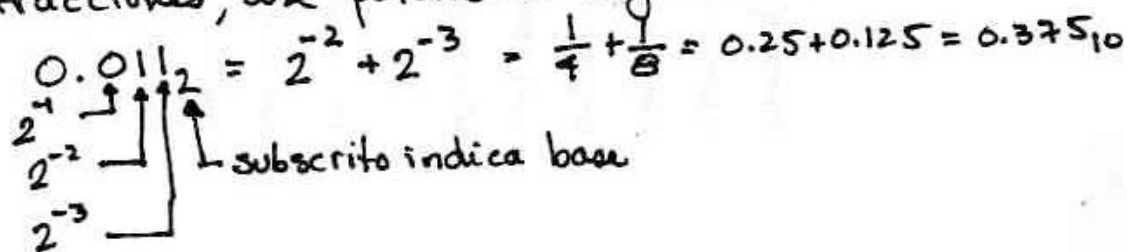 0.011₂ = 2⁻² + 2⁻³ = 1/4 + 1/8 = 0.25+0.125 = 0.375₁₀
2⁻¹
2⁻² subscrito indica base
2⁻³